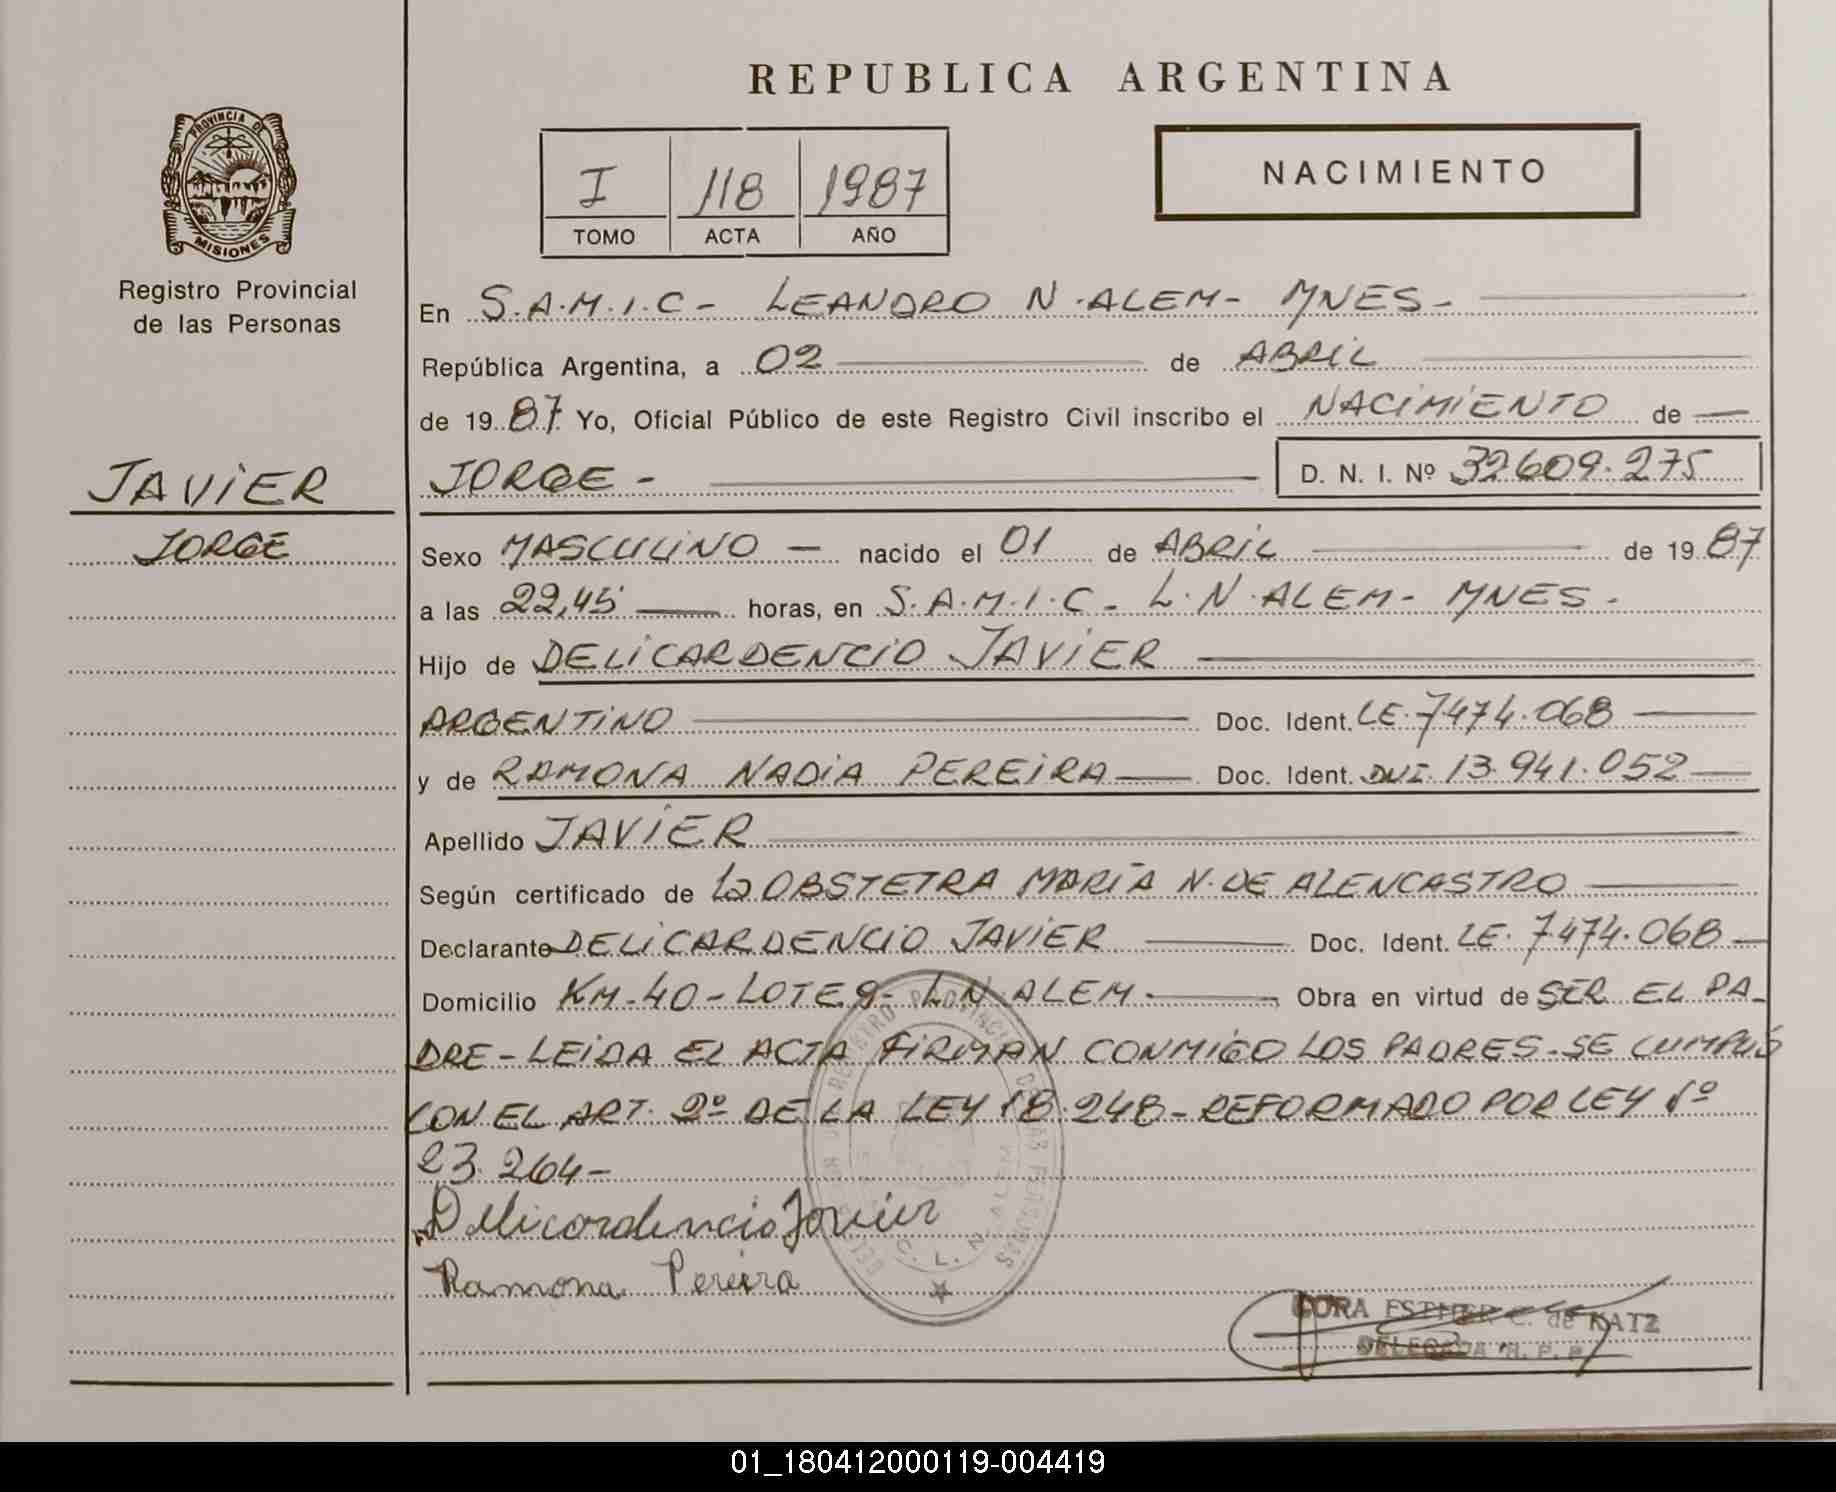 REPUBLICA ARGENTINA
PROVINCIA DE
MISIONES
Registro Provincial
de las Personas
I 118 1987
TOMO ACTA AÑO
NACIMIENTO
En S.A.M.I.C- LEANDRO N.ALEM- MNES-
República Argentina, a 02 de ABRIL
de 1987 Yo, Oficial Público de este Registro Civil inscribo el NACIMIENTO de
JAVIER
JORGE
JORGE - D. N. I. Nº 32609.275
Sexo MASCULINO — nacido el 01 de ABRIL de 1987
a las 22,45 horas, en S.A.M.I.C- L.N.ALEM- MNES-
Hijo de DELICARDENCIO JAVIER
ARGENTINO Doc. Ident. LE.7474.068
y de RAMONA NADIA PEREIRA Doc. Ident. DNI. 13.941.052
Apellido JAVIER
Según certificado de La OBSTETRA MARIA N. DE ALENCASTRO
Declarante DELICARDENCIO JAVIER Doc. Ident. LE. 7474.068
Domicilio KM-40-LOTE 9- L.N.ALEM- Obra en virtud de SER EL PA-
DRE-LEIDA EL ACTA FIRMAN CONMIGO LOS PADRES-SE CUMPLIÓ
CON EL ART. 2º DE LA LEY 18.248-REFORMADO POR LEY Nº
23.264-
Delicardencio Javier
Ramona Pereira
C. L. N. ALEM
CORA ESTHER C. de KATZ
DELEGADA R. P. P.
01_180412000119-004419